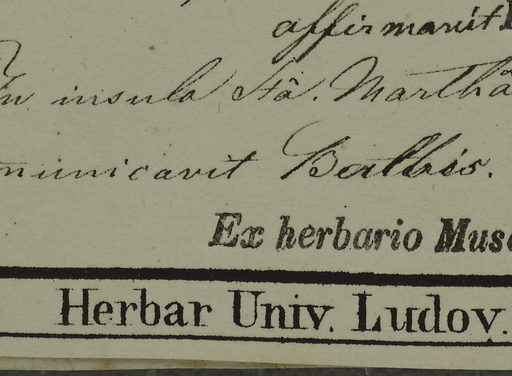 affirmavit
In insula Stâ. Marthâ
municavit Balbis.
Ex herbario Mus
Herbar Univ. Ludov.